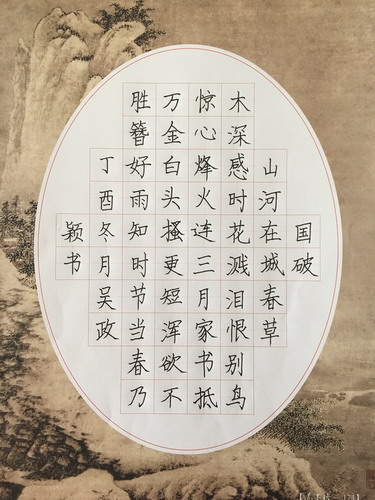 国破
山河在城春草
木深感时花溅泪恨别鸟
惊心烽火连三月家书抵
万金白头搔更短浑欲不
胜簪好雨知时节当春乃
丁酉冬月吴政
颖书